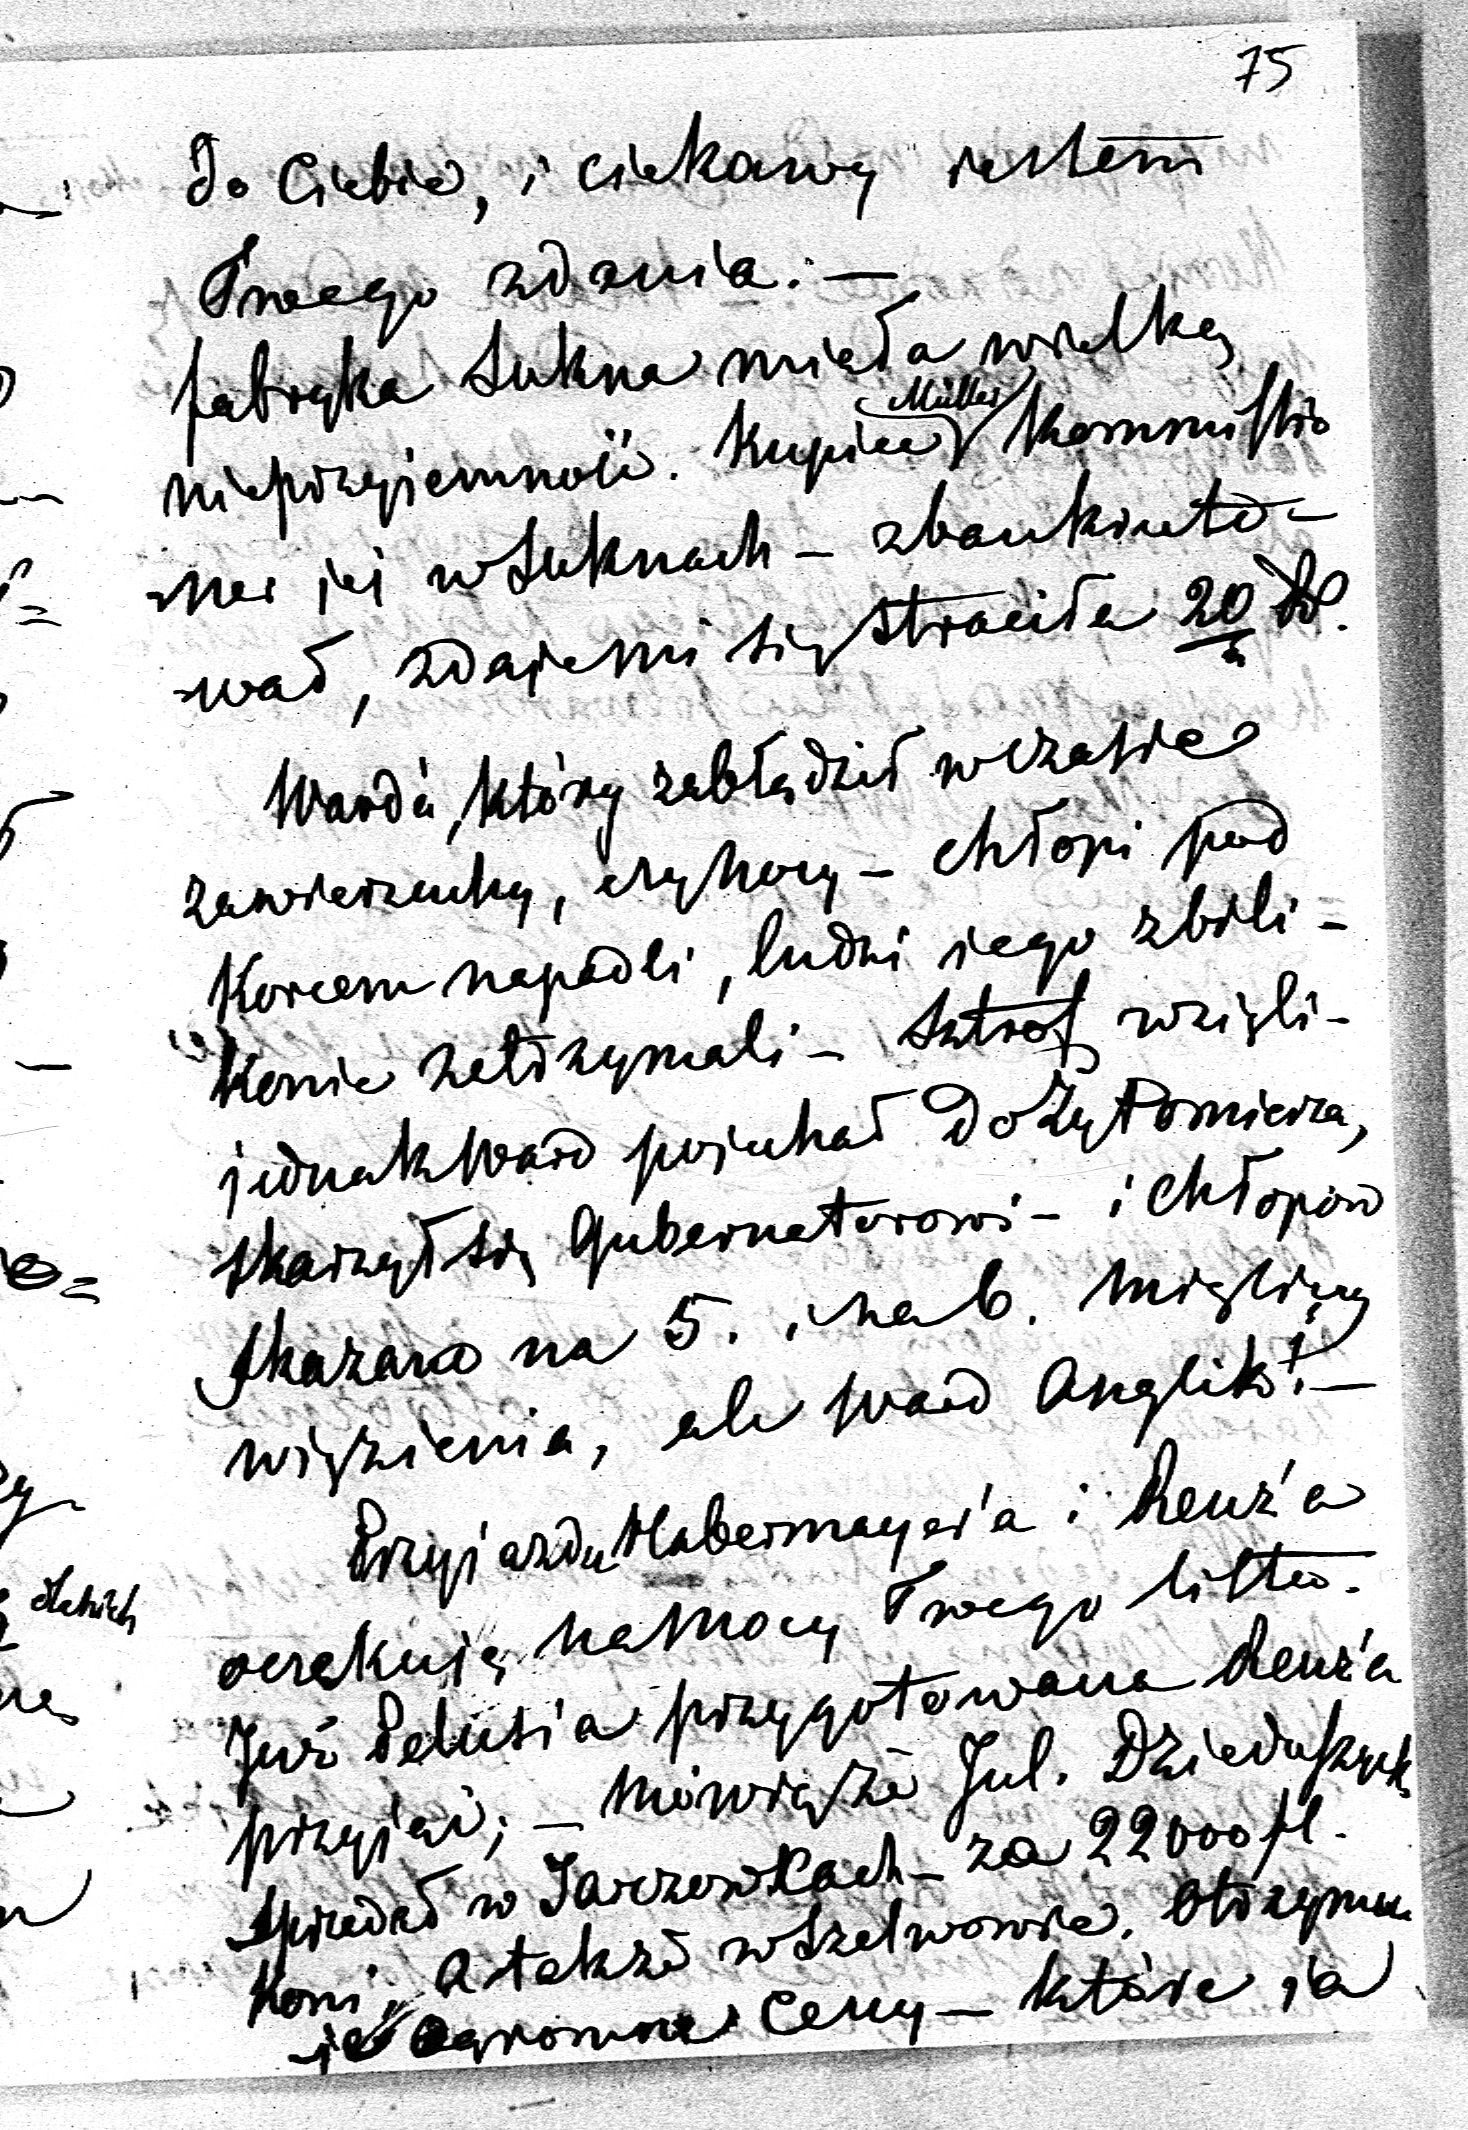 75
do Ciebie, i ciekawy iestem
Twoego zdania. —
fabryka Sukna miała wielką
nieprzyiemność. Kupiec Müller Kommissio
=ner jej w Suknach – zbankruto-
-wał, zdaje mi się straciła 20
Ward'a, który zabłądził w czasie
zawieruchy, czy nocy – chłopi pod
Korcem napadli, ludzi iego zbili –
Konie zatrzymali – sztrof wzięli –
jednak Ward pojechał do Żytomierza,
skarzył się Gubernatorowi – i chłopów
skazano na 5. i na 6. miesięcy
więzienia, ale Ward Anglik! —
Przyjazdu Habermayer'a i Renz'a
oczekuję na mocy Twego listu.
Już Pelusia przygotowana Renz'a
przyjąć; – mówią że Jul. Dzieduszycki
sprzedał w Jarczowkach – za 22000 fl.
Koni, a także w Szelwowie. Otrzymu
-ie ogromne Ceny – które ia
słabich